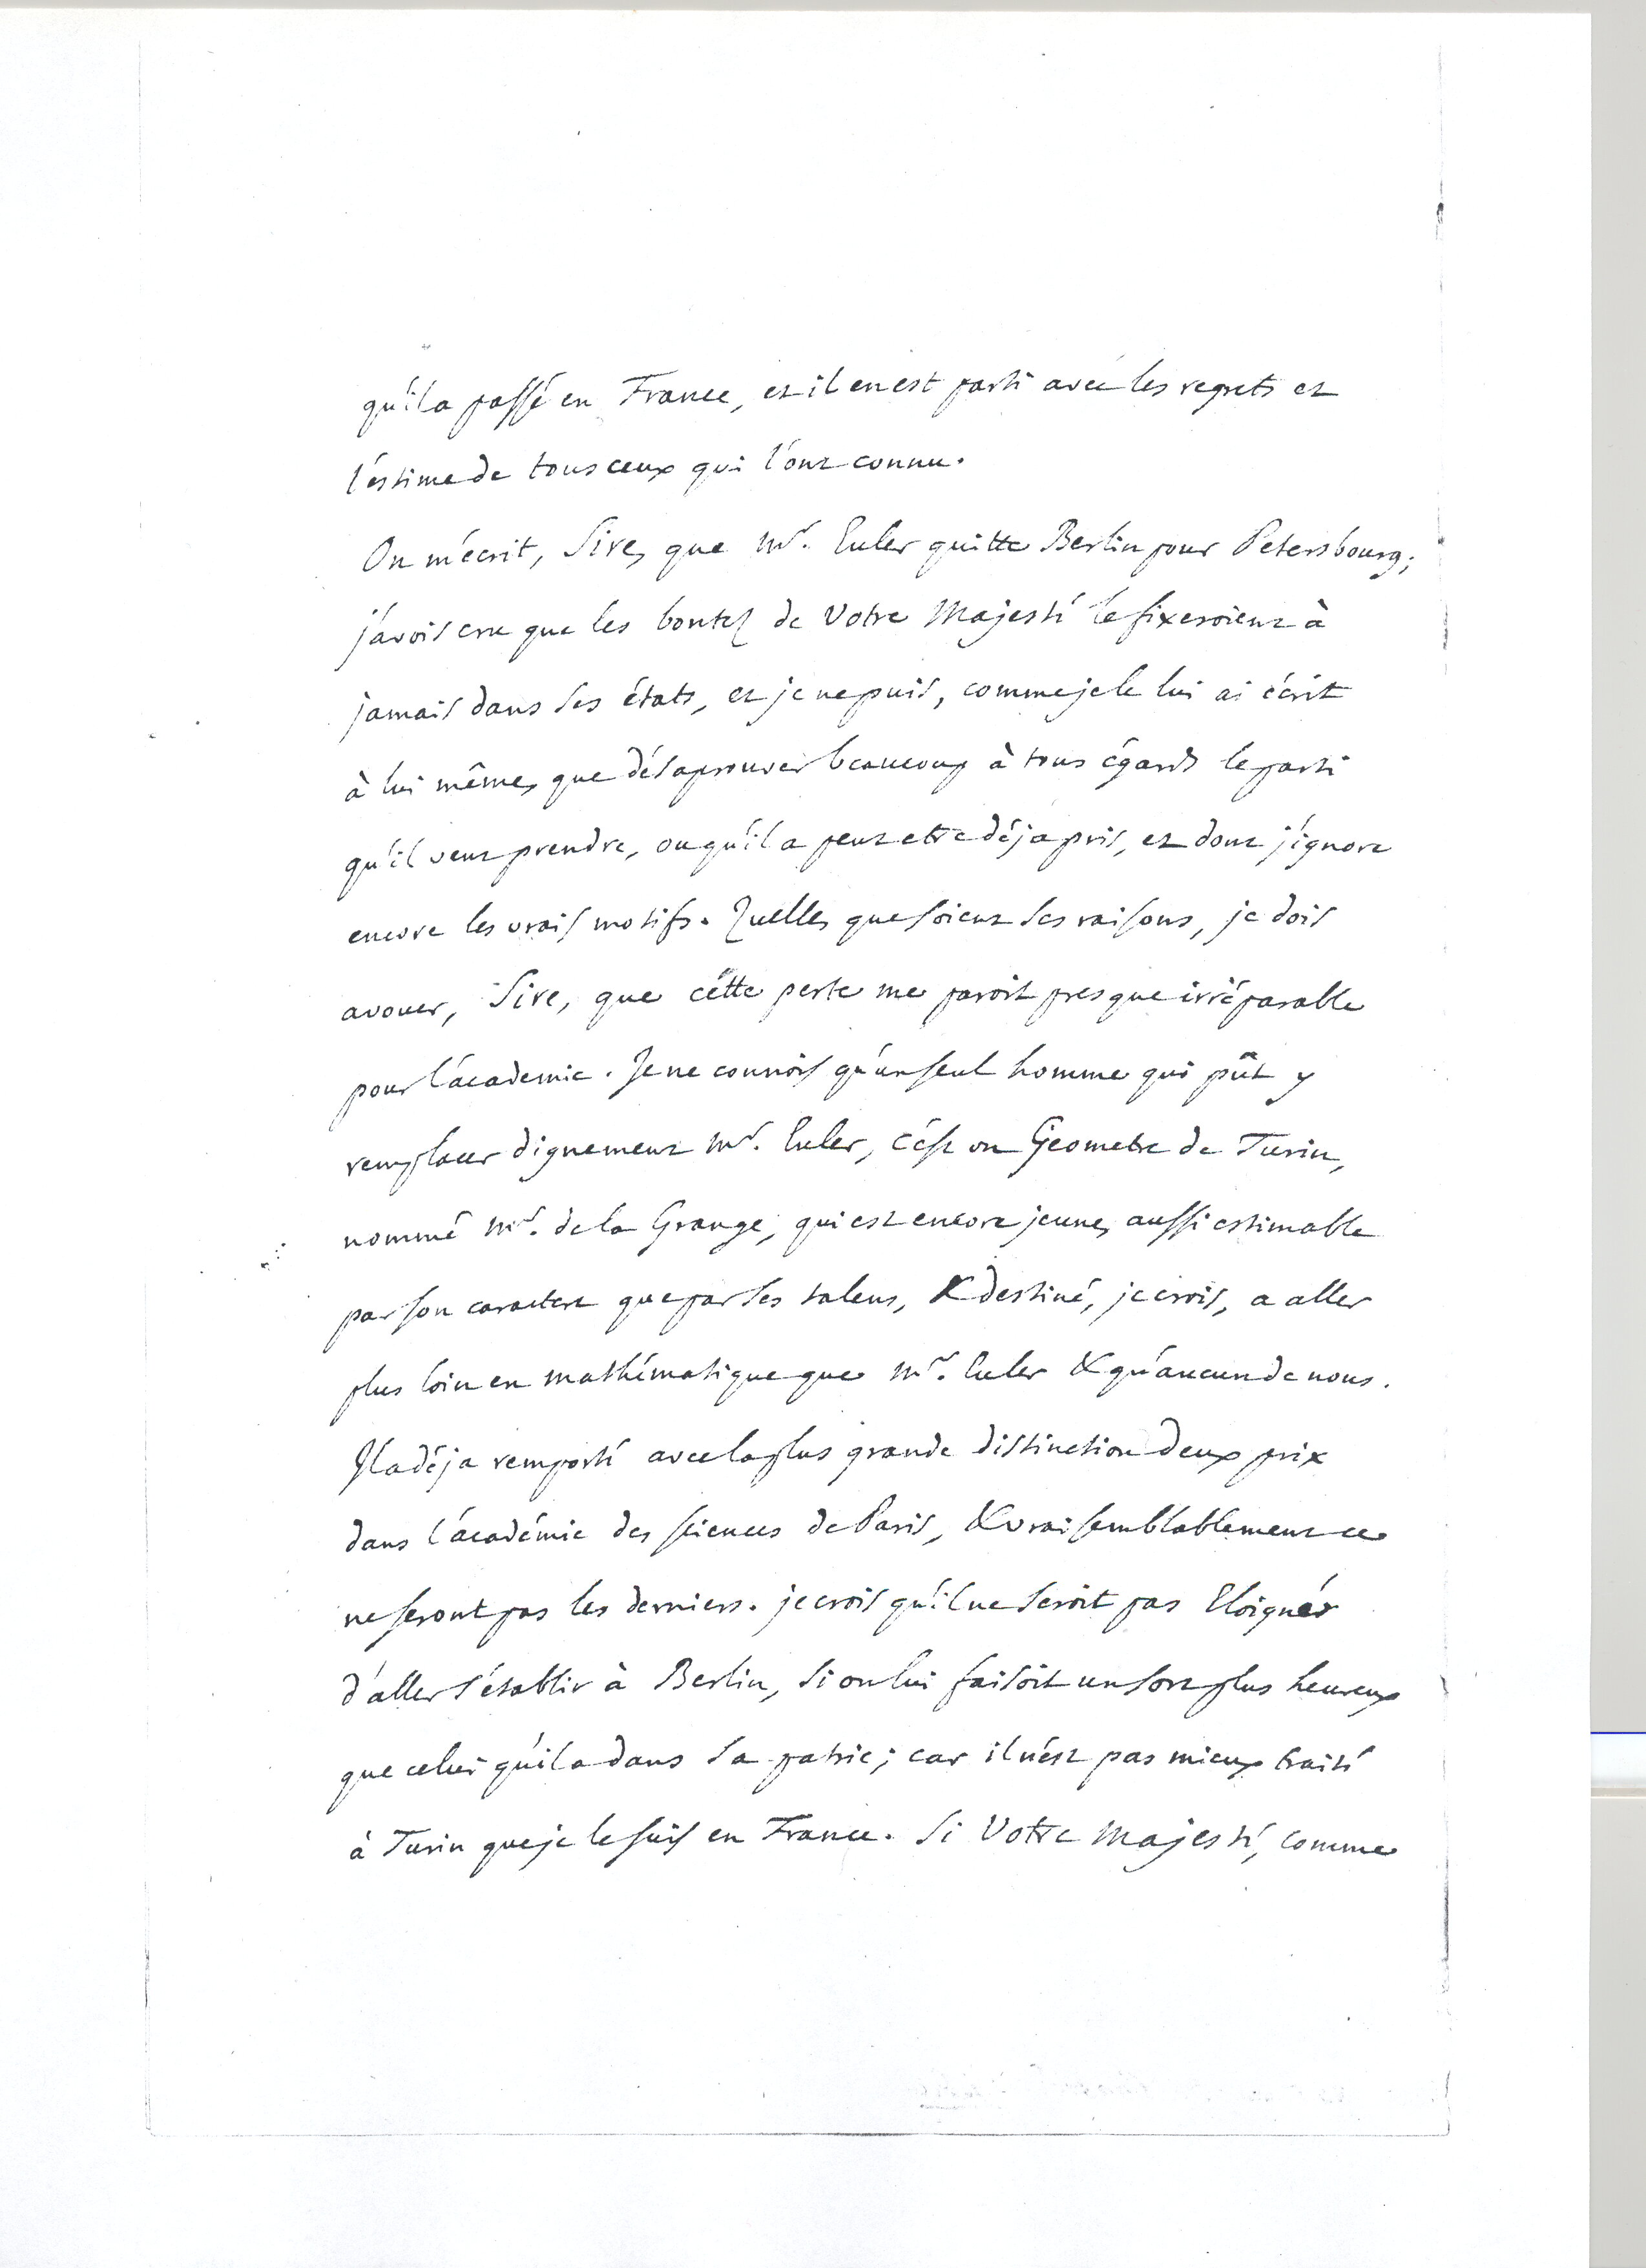 qu'il a passé en France, et il en est parti avec les regrets et
l'éstime de tous ceux qui l'ont connu.
On m'écrit, Sire, que Mr. Euler quitte Berlin pour Petersbourg;
j'avois cru que les bontez de Votre Majesté le fixeroient à
jamais dans ses états, et je ne puis, comme je le lui ai écrit
à lui même, que désaprouver beaucoup à tous égards le parti
qu'il veut prendre, ou qu'il a peut etre déja pris, et dont j'ignore
encore les vrais motifs. Quelles que soient ses raisons, je dois
avouer, Sire, que cétte perte me paroit presque irréparable
pour l'académie. Je ne connois qu'un seul homme qui pût y
remplacer dignement Mr. Euler, c'est un Géometre de Turin,
nommé Mr. de la Grange, qui est encore jeune, aussi estimable
par son caractere que par ses talens, & destiné, je crois, a aller
plus loin en mathématique que Mr. Euler & qu'aucun de nous.
Il a déja remporté avec la plus grande distinction deux prix
dans l'académie des sciences de Paris, & vraisemblablement ce
ne seront pas les derniers. je crois qu'il ne seroit pas Eloigné
d'aller s'établir à Berlin, si on lui faisoit un sort plus heureux
que celui qu'il a dans sa patrie; car il n'est pas mieux traité
à Turin que je le suis en France. Si Votre Majesté, comme